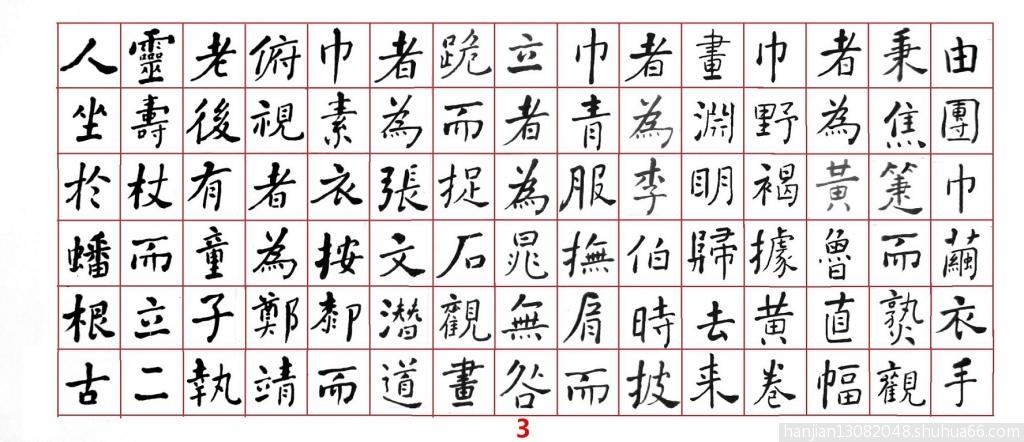 由團巾繭衣手
秉焦箑而熟觀
者為黃魯直幅
巾野褐據黃卷
畫淵眀歸去来
者為李伯時披
巾青服撫肩而
立者為晁無咎
跪而捉石觀畫
者為張文潛道
巾素衣按厀而
俯視者為鄭靖
老後有童子執
靈壽杖而立二
人坐於蟠根古
3
hanjian13082048.shuhua66.com